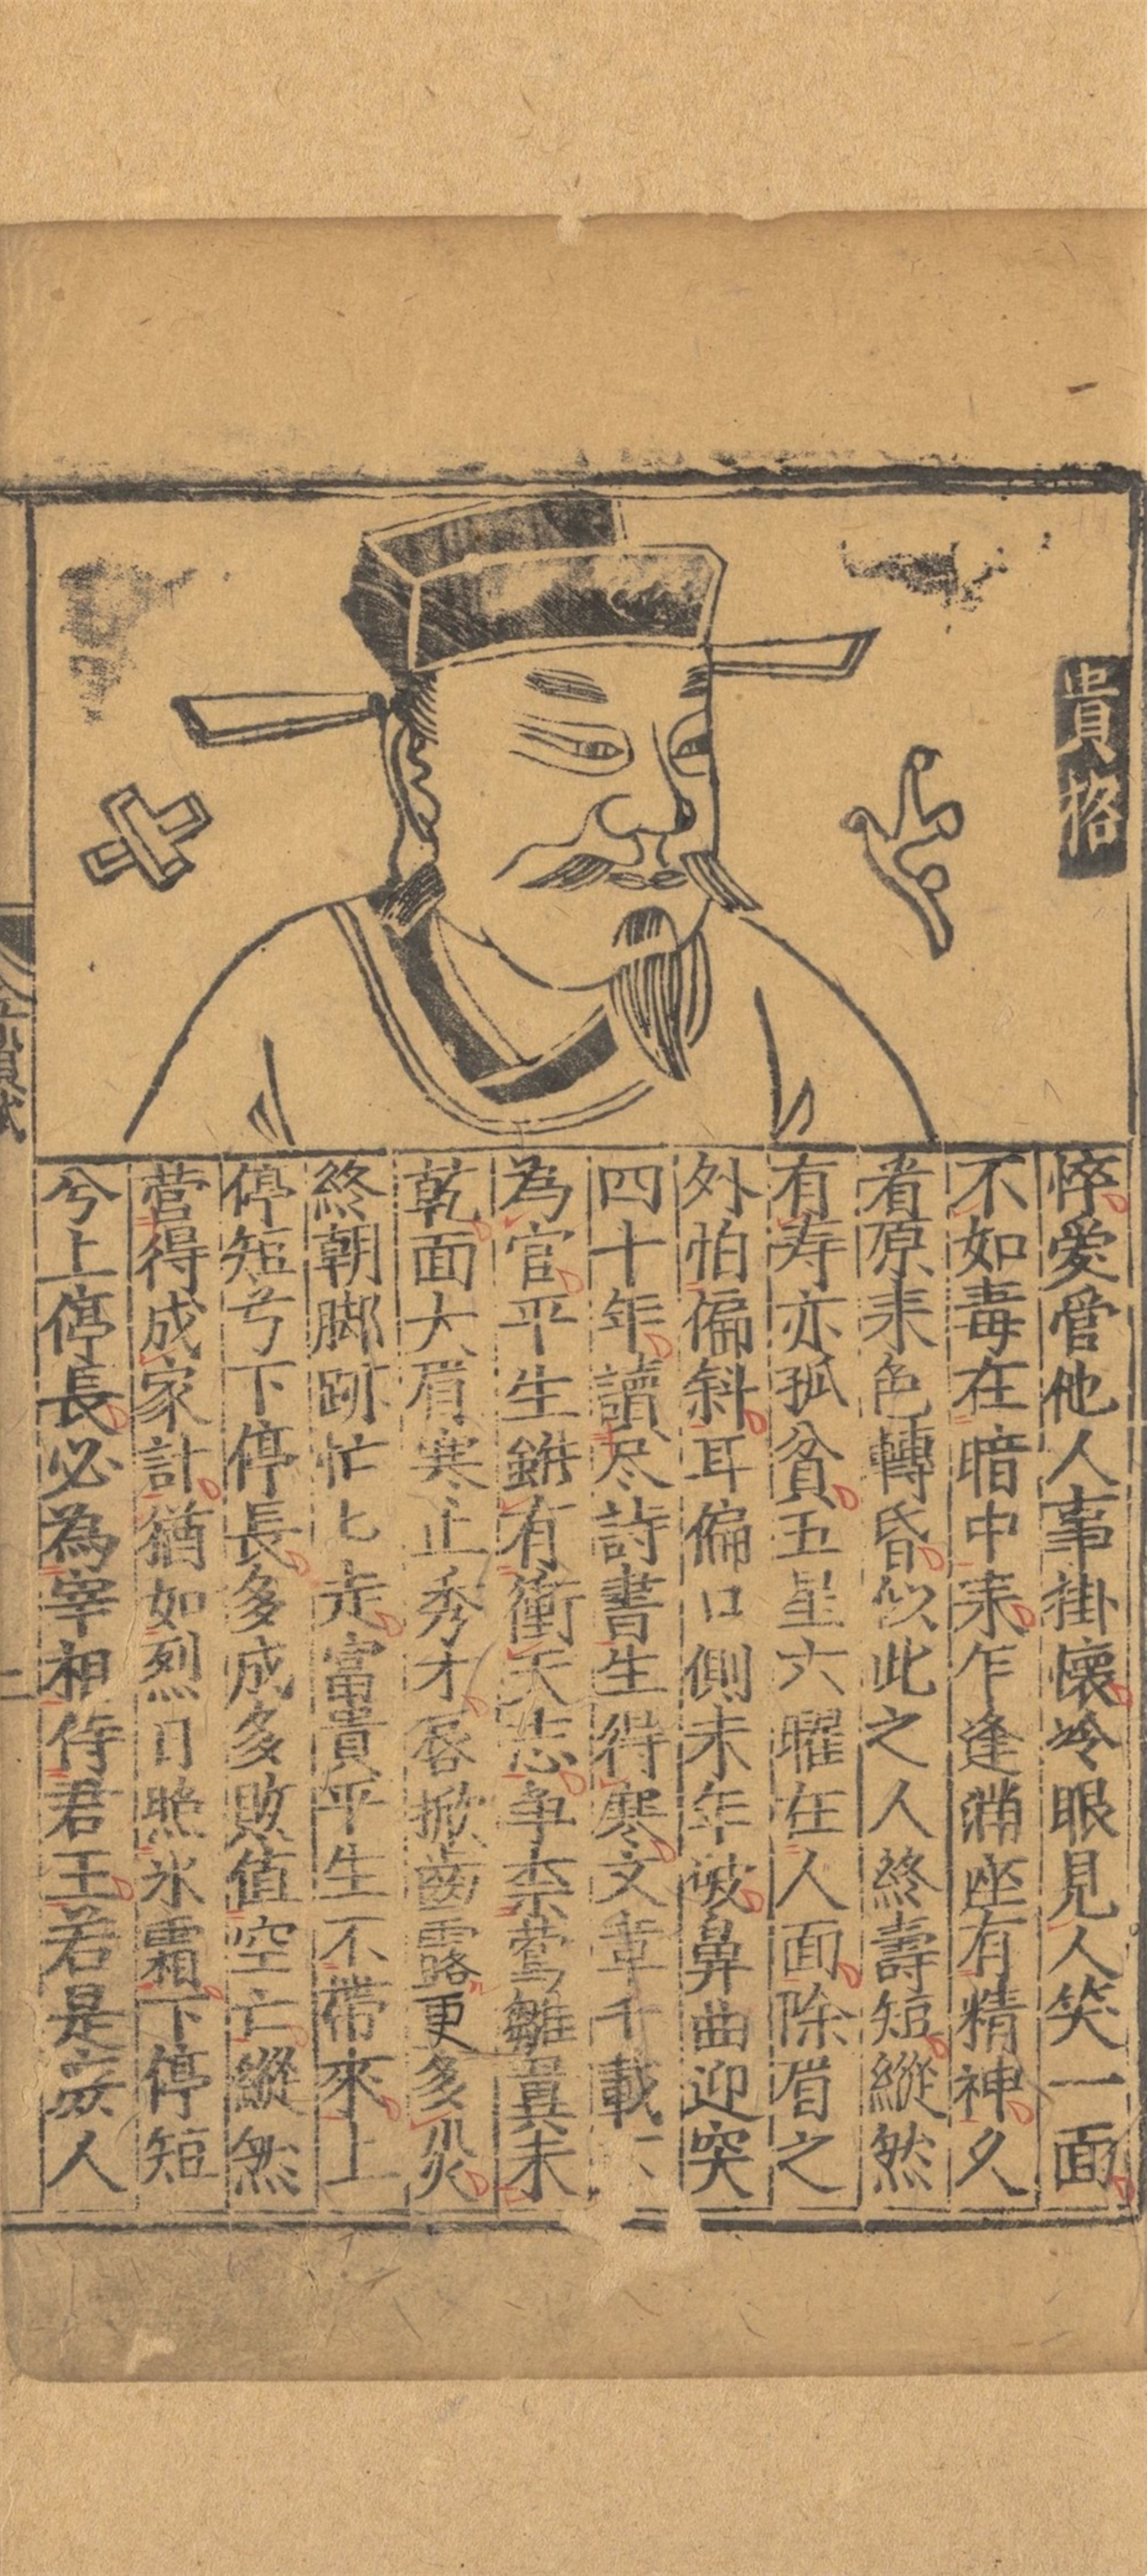 貴格
悴愛管他人事掛懷冷眼見人笑一面
不如毒在暗中耒乍逢滿座有精神久
看原耒色轉昏似此之人終壽短縱然
有寿亦孤貧五星六曜在人面除眉之
外怕偏斜耳偏口側末年破鼻曲迎突
四十年讀尽詩書生得寒文章千載
為官平生雖有衝天志争柰鶯雛翼未
乾面大眉寒止秀才唇掀齒露更多災
終朝脚跡忙七走富貴平生不帶來上
停短兮下停長多成多敗值空亡縱然
营得成家計猶如烈日照氷霜下停短
兮上停長必為宰相侍君王若是庶人